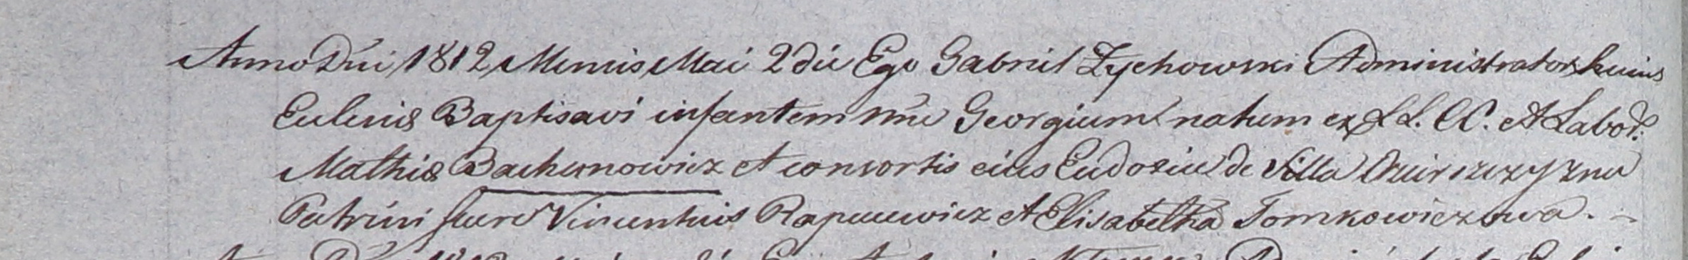 Anno Dni 1812 Mensis Mai 2 die Ego Gabriel Zychowski Administrator huius
Eclesiæ Baptisavi infantem nne Georgium natum ex LL. CC. et Labor:
Mathiæ Bachunowicz et consortis eius Eudoxiæ de Villa
Patrini fuere Vincentius Rapacewicz et Elisabetha Tomkowiczowa.